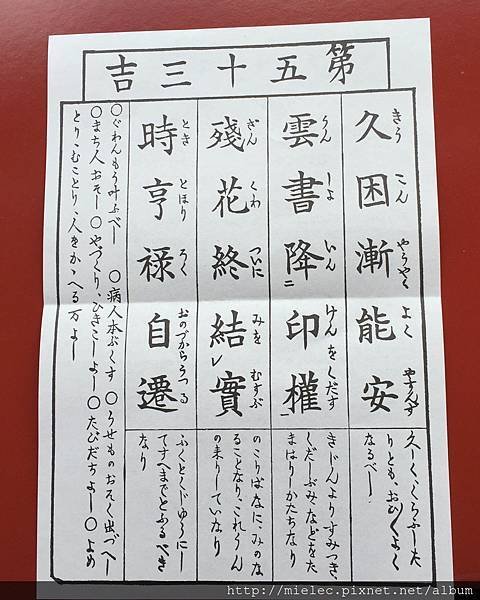 第五十三吉
久困漸能安
きう こん やうやく よく やすんず
雲書降印權
うん しよ いん けん をくだす
殘花終結實
ざん くわ ついに みを むすぶ
時亨祿自遷
とき とほり ろく おのづからうつる
久しく、くらふした
りとも、おひ〳〵よく
なるべし
きじんよりすみつき、
くだしぶみ、などをた
まはりしかたちなり
のこりばなに、みのな
ることなり、これうん
の来りしていなり
ふくとくじゆうにし
てすへまでとふるべき
なり
〇ぐわんもう叶ふべし 〇病人本ぶくす 〇うせものおそく出づべし
〇まち人おそし 〇やづくり、ひきこしよし 〇たびだちよし 〇よめ
とり、むことり、人をかゝへる万よし
http://mielec.pixnet.net/album